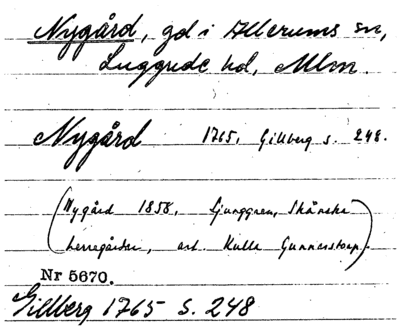 Nygård, gd i Allerums sn,
Luggude hd, Mlm.
Nygård 1765, Gillberg s. 248.
(Nygård 1858, Ljunggren, Skånska
herregårdar, art. Kulla Gunnarstorp).
Nr 5670.
Gillberg 1765 S. 248